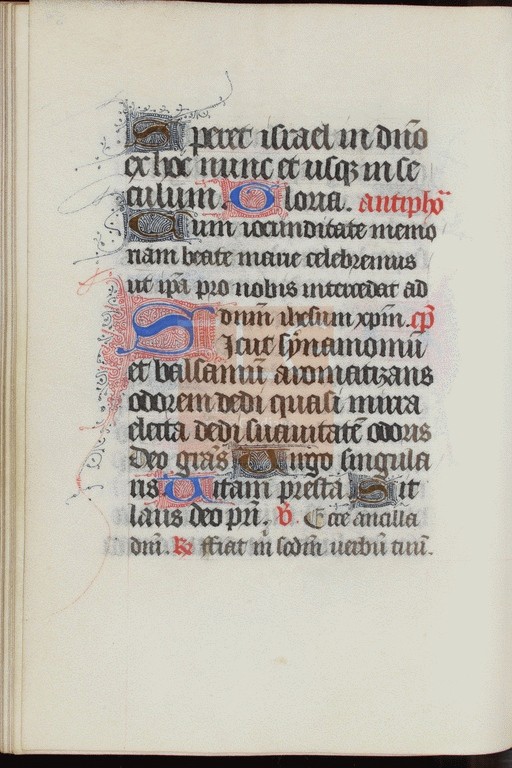 Speret israel in dño
ex hoc nunc et usqꝫ in se
culum. Gloria. antiphõ
Cum iocunditate memo
riam beate marie celebremus
ut ip̃a pro nobis intercedat ad
dñum ihesum xp̃m. cp̃
Sicut synamomũ
et balsamũ aromatizans
odorem dedi quasi mirra
electa dedi suauitatẽ odoris
Deo gr̃as Uirgo singula
ris Uitam presta Sit
laus deo pr̃i. v̄. Ecce ancilla
dñi. R̃ ffiat m̃ scd̃m uerbũ tuũ.